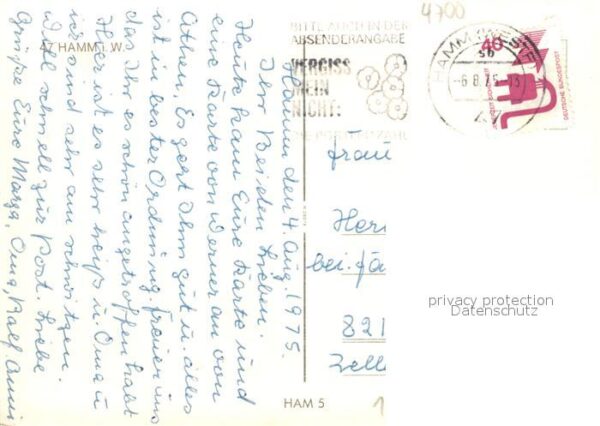 Hamm, den 4. Aug. 1975.
Ihr Beiden Lieben.
Heute kam Eure Karte und
eine Karte von Werner an von
Es geht ihm gut u. alles
ist in bester Ordnung. freuen uns
das Ihr es schön angetroffen habt
Hier ist es sehr heiß u. Oma u
ich sind sehr am schwitzen.
Will schnell zur Post. Liebe
Grüße Eure Marga, Oma, Ralf
47 HAMM i. W.
BITTE AUCH IN DER
ABSENDERANGABE
VERGISS
MEIN
NICHT:
DIE POSTLEITZAHL
4700
HAMM (WESTF)
-6.8.75-
40
DEUTSCHE BUNDESPOST
frau
Her
bei
821
privacy protection
Datenschutz
HAM 5
1